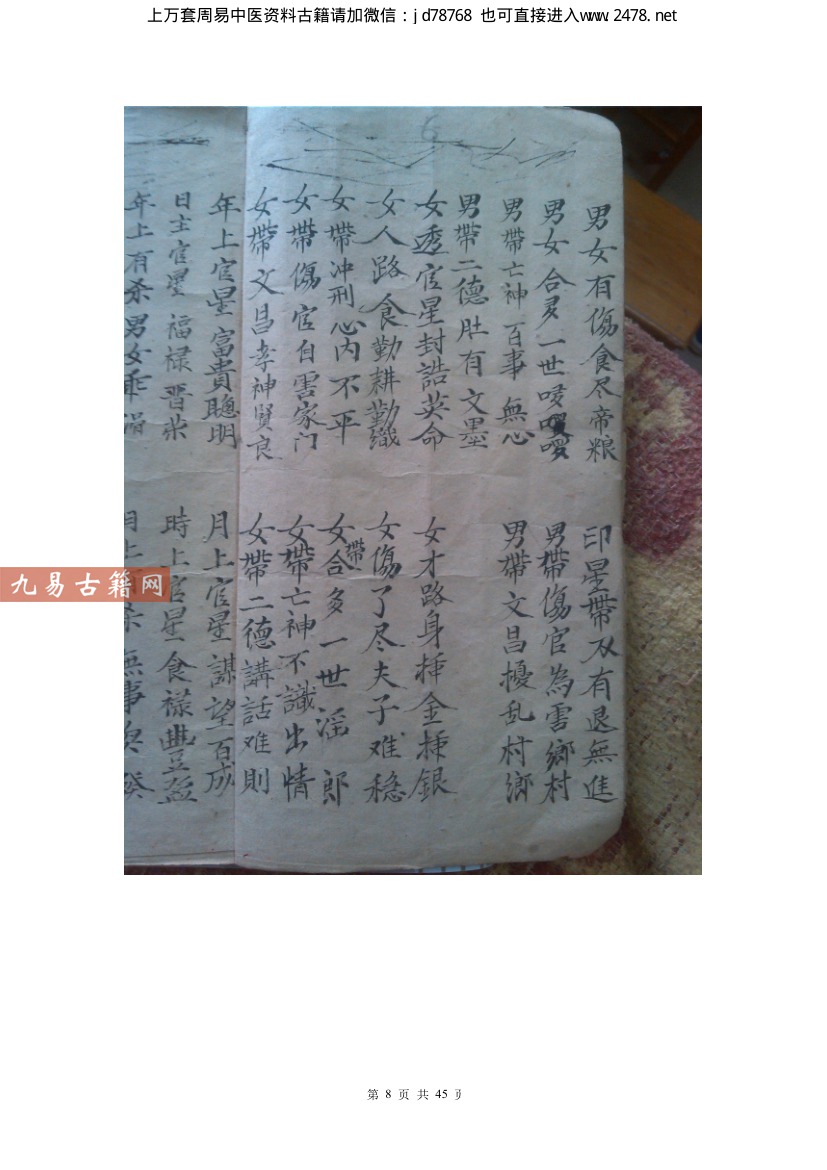 上万套周易中医资料古籍请加微信：jd78768 也可直接进入www.2478.net
男女有傷食尽帝粮
印星帶刃有退無進
男女合多一世嘜
男帶傷官為害鄉村
男帶亡神百事無心
男帶文昌擾乱村鄉
男帶二德肚有文墨
女透官星封誥英命
女才路身揷金揷銀
女人路食勤耕勤織
女傷了尽夫子难稳
女帶冲刑心内不平
女帶合多一世滛郎
女帶傷官自害家门
女帶亡神不識出情
女帶文昌孝神賢良
女帶二德講話难則
年上官星富貴聰明
月上官星謀望百成
日主官星福禄晋
時上官星食禄豊盈
年上有杀男女乖
月上杀無事
九易古籍网
第 8 页 共 45 页